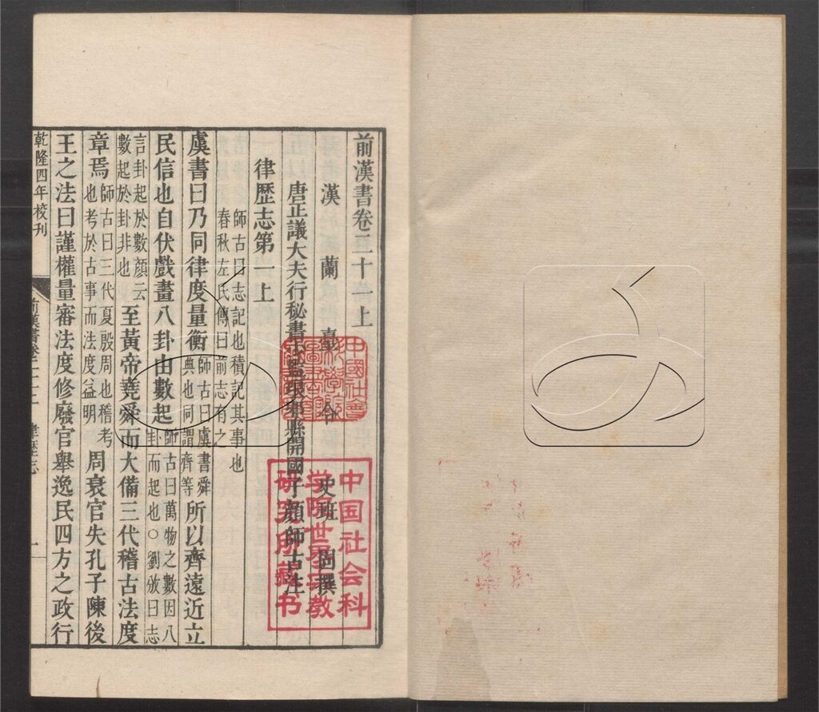 前漢書卷二十一上
漢蘭臺令史班固撰
唐正議大夫行秘書少監琅邪縣開國子顏師古注
律歷志第一上
師古曰志記也積記其事也
春秋左氏傳曰前志有之
虞書曰乃同律度量衡師古曰虞書舜典也同謂齊等所以齊遠近立
民信也自伏戲畫八卦由數起師古曰萬物之數因八卦而起也○劉攽曰志
言卦起於數顏云數起於卦非也至黃帝堯舜而大備三代稽古法度
章焉師古曰三代夏殷周也稽考也考於古事而法度益明周衰官失孔子陳後
王之法曰謹權量審法度修廢官舉逸民四方之政行
乾隆四年校刊
律歷志
一
中国社会科
学院世界宗教
研究所藏书
中國社會
科學院
圖書